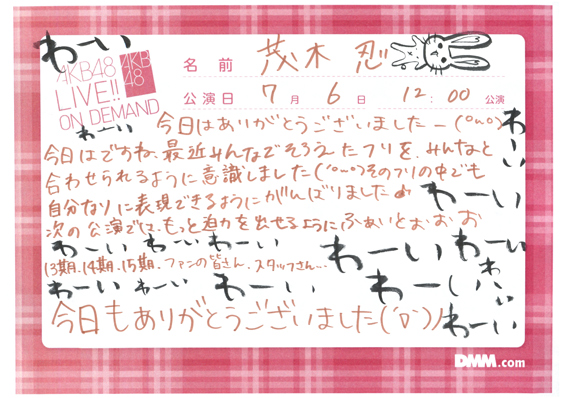 わーい
AKB48
LIVE!!
ON DEMAND
AKB
48
名前 茂木忍
公演日 7月 6日 12:00 公演
わーい
今日はありがとうございましたー(°ω°)
わーい
今日はですね、最近みんなでそろえたフリを、みんなと
合わせられるように意識しました(°ω°)そのフリの中でも
自分なりに表現できるようにがんばりました♪
わーい
次の公演では、もっと迫力を出せるようにふぁいとおぉお
わーい わーい わーい わーい わーい
13期.14期.15期.ファンの皆さん.スタッフさん…
わーい
わーい わーい わーい わーい
今日もありがとうございました(´▽`)/
わーい
DMM.com